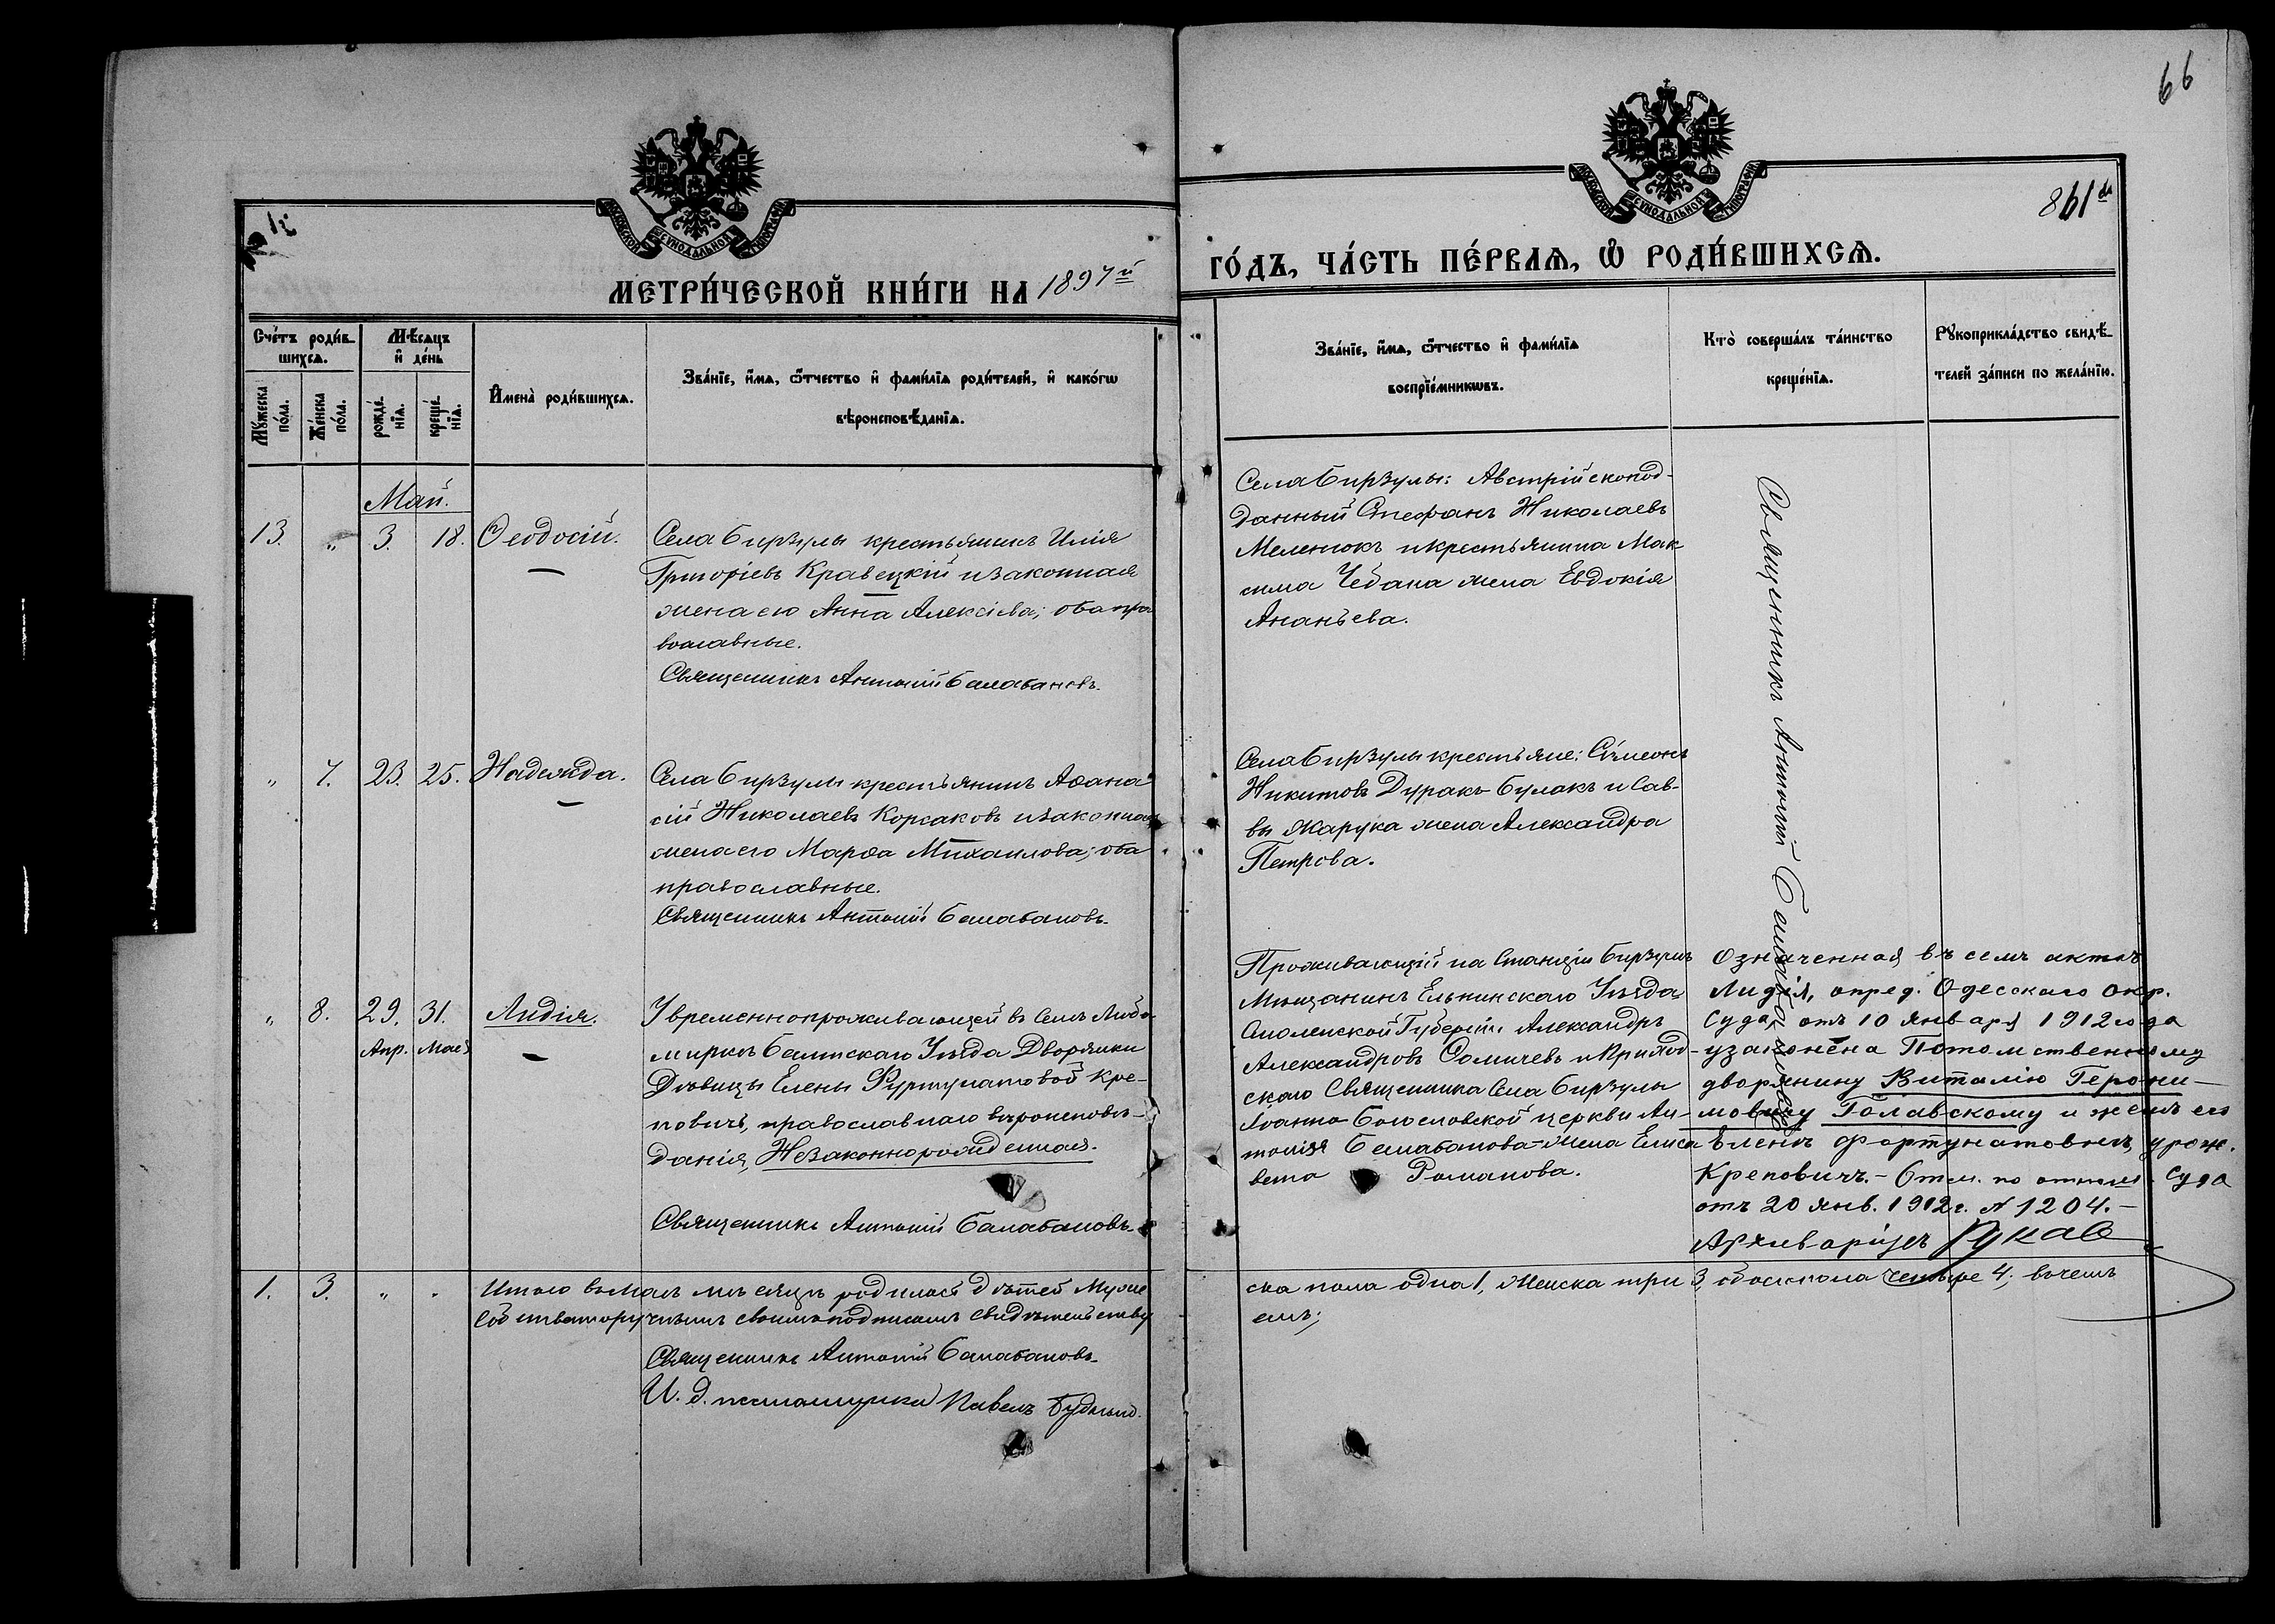 66
861
МОСКОВСКОЙ СУНОДАЛЬНОЙ ТИПОГРАФІИ
МОСКОВСКОЙ СУНОДАЛЬНОЙ ТИПОГРАФІИ
МЕТРИ́ЧЕСКОЙ КНИ́ГИ НА 1897й
ГО́ДЪ, ЧА́СТЬ ПЕ́РВАѦ, Ѡ РОДИ́ВШИХСѦ.
Сче́тъ роди́в-
шихсѧ.
Мꙋ́жеска по́ла.
Же́нска по́ла.
Мѣ́сѧцъ
и҆ де́нь
рожде́-
нїѧ.
креще́-
нїѧ.
И҆мена̀ роди́вшихсѧ.
Зва́нїе, и҆́мѧ, ѻ҆́тчество и҆ фами́лїѧ роди́телей, и҆ како́гѡ
вѣроисповѣ́данїѧ.
Зва́нїе, и҆́мѧ, ѻ҆́тчество и҆ фами́лїѧ
воспрїе́мникѡвъ.
Кто̀ соверша́лъ та́инство
креще́нїѧ.
Рꙋкоприкла́дство свидѣ́-
телей за́писи по жела́нїю.
Май.
13. " 3. 18. Ѳеодосій.
Села Бирзулы крестьянинъ Илія
Григоріевъ Кравецкій и законная
жена его Анна Алексіева; оба пра
вославные.
Священникъ Антоній Балабановъ.
Села Бирзулы: Австрійскопод-
данный Стефанъ Николаевъ
Меленюкъ и крестьянина Мак
сима Чебана жена Евдокія
Ананьева.
Священникъ Антоній Балабановъ
" 7. 23. 25. Надежда.
Села Бирзулы крестьянинъ Аѳана
сій Николаевъ Корсаковъ и законная
жена его Марѳа Михаилова; оба
православные.
Священникъ Антоній Балабановъ.
Села Бирзулы крестьяне: Сѵмеонъ
Никитовъ Дуракъ-Булакъ и Сав-
вы Жарука жена Александра
Петрова.
" 8. 29. 31. Лидія.
Апр. Мая
У временнопроживающей въ селѣ Любо-
миркѣ Балтскаго Уѣзда Дворянки
Дѣвицы Елены Фуртунатовой Кре-
повичъ, православнаго вѣроисповѣ-
данія, Незаконнорожденная.
Священникъ Антоній Балабановъ.
Проживающій на Станціи Бирзула
Мѣщанинъ Ельнинскаго Уѣзда
Смоленской Губерніи Александръ
Александровъ и Приход-
скаго Священника Села Бирзулы
Іоанно-Богословской церкви Ан-
тонія Балабанова-жена Елиса
вета Романова.
Означенная въ семъ актѣ
Лидія, опред. Одесскаго Окр.
Суда, отъ 10 января 1912 года
узаконена Потомственному
дворянину Виталію Герони-
мовичуГолавскому и женѣ его
Еленѣ Фортунатовнѣ, урож.
Креповичъ.- Отм. по отнош. Суда
отъ 20 янв. 1912 г. № 1204.-
Архиваріусъ
1. 3. " "
Итого въ Маѣ мѣсяцѣ родилось дѣтей Муже
ска пола одна 1, Женска три 3, обоего пола четыре 4; въ чемъ
собственноручнымъ своимъ подписомъ свидѣтельству
емъ;
Священникъ Антоній Балабановъ
И. д. псаломщика Павелъ